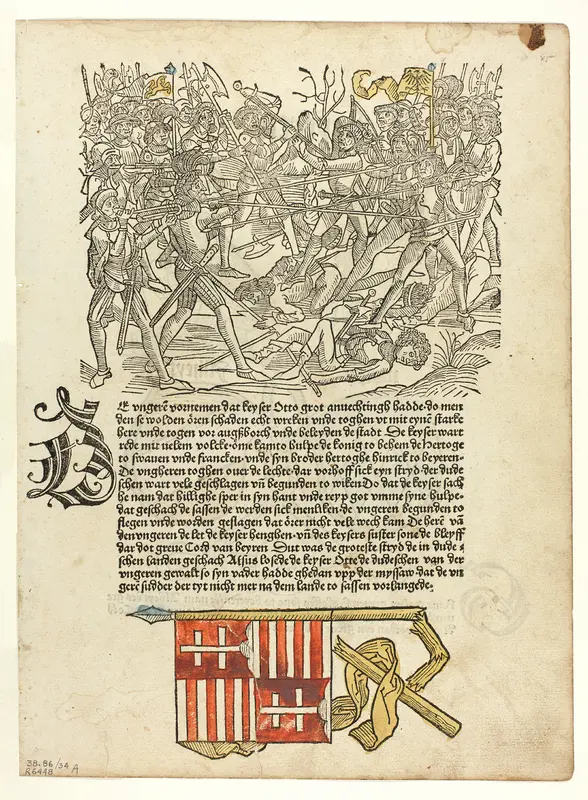 DE vngerē vornemen dat keyser Otto grot anuechtingh hadde·do men
den se wolden ören schaden echt wreken vnde toghen vt mit eynē starke
here vnde togen vor augßborch vnde beleyden de stadt· De keyser wart
rede mit uelem volcke·öme kam to hulpe de koning to behem de Hertoge
to swauen vnde francken·vnde syn broder hertoghe hinrick to beyeren·
De vngheren toghen ouer de lechte·dar vorhoff sick eyn stryd der dude
schen wart vele geschlagen vñ begunden to wiken Do dat de keyser sach
he nam dat hillighe sper in syn hant vnde reyp got vmme syne hulpe·
dat geschach de sassen de werden sick menliken de vngeren begunden to
flegen vnde worden geslagen dat örer nicht vele wech kam De herē vā
den vngeren de let de keyser henghen·vñ des keysers suster sone de bleyff
dar dot greue Cord van beyren· Dut was de groteste stryd de in dude
schen landen geschach Alsus losede de keyser Otte de dudeschen van der
vngeren gewalt so syn vader hadde ghedan vpp der myssaw dat de vn
gerē sudder der tyt nicht mer na dem lande to sassen vorlangede·
38.86/34 A
R6448